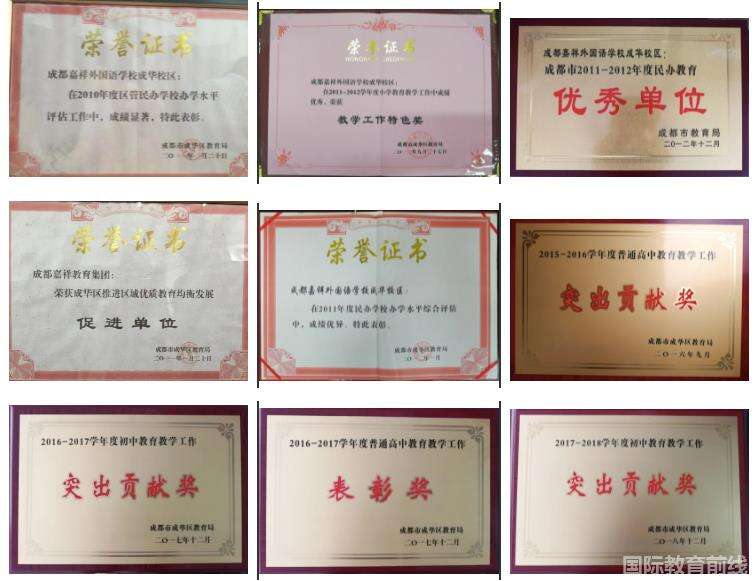 荣誉证书
成都嘉祥外国语学校成华校区：
在2010年度区管民办学校办学水平
评估工作中，成绩显著，特此表彰。
成都市成华区教育局
荣誉证书
成都嘉祥外国语学校成华校区：
在2011-2012学年度小学教育教学工作中成绩
优秀，荣获
教学工作特色奖
成都市成华区教育局
成都嘉祥外国语学校成华校区：
成都市2011-2012年度民办教育
优秀单位
成都市教育局
二〇一二年十二月
荣誉证书
成都嘉祥教育集团：
荣获成华区推进区域优质教育均衡发展
促进单位
成都市成华区教育局
荣誉证书
成都嘉祥外国语学校成华校区：
在2011年度民办学校办学水平综合评估
中，成绩优异。特此表彰。
成都市成华区教育局
2015-2016学年度普通高中教育教学工作
突出贡献奖
成都市成华区教育局
二〇一六年九月
2016-2017学年度初中教育教学工作
突出贡献奖
成都市成华区教育局
二〇一七年十二月
2016-2017学年度普通高中教育教学工作
表彰奖
成都市成华区教育局
二〇一七年十二月
2017-2018学年度初中教育教学工作
突出贡献奖
成都市成华区教育局
二〇一八年十二月
国际教育前线